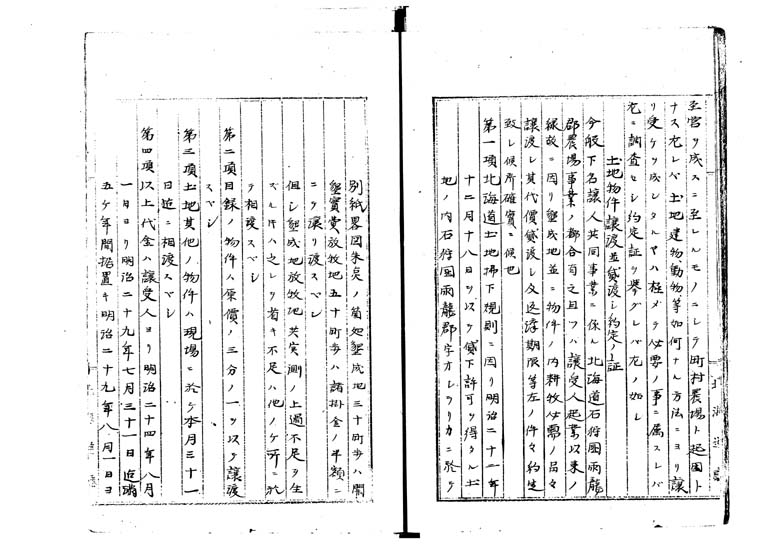 至官リ成スニ至レルモノニシテ町村農場ト起因ト
ナス左レバ土地建物動物等如何ナル方法ニヨリ讓
リ受ケリ成シタルヤハ極メテ必要ノ事ニ属スレバ
左ニ調査セシ約定証ヲ擧グレバ左ノ如シ
土地物件讓渡並貸渡シ約定ノ証
今般下名讓人共同事業ニ係ル北海道石狩國雨龍
郡農場事業ノ都合有之且ツハ讓受人起業以來ノ
縁故ニ因リ墾成地並ニ物件ノ内耕牧必需ノ品々
讓渡シ其代價貸渡シ及返濟期限等左ノ件々約定
致シ候所確實ニ候也
第一項北海道土地拂下規則ニ因リ明治二十一年
十二月十八日ヲ以テ貸下許可ヲ得タル土
地ノ内石狩國雨龍郡字オシラリカニ於テ
別紙畧図朱点ノ箇処墾成地三十町歩ハ開
墾實費放牧地五十町歩ハ諸掛金ノ半額ニ
テ讓リ渡スベシ
但シ墾成地放牧地共実測ノ上過不足ヲ生
ズル件ハ之レヲ省キ不足ハ他ノ ケ所ニ於
テ相渡スベシ
第二項目録ノ物件ハ原價ノ三分ノ一ヲ以テ讓渡
スベシ
第三項土地其他ノ物件ハ現場ニ於テ本月三十一
日迄ニ相渡スベシ
第四項以上代金ハ讓受人ヨリ明治二十四年八月
一日ヨリ明治二十九年七月三十一日迄満
五ケ年間据置キ明治二十九年八月一日ヨ